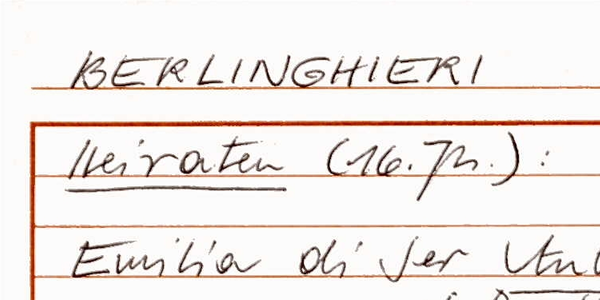 BERLINGHIERI
Heiraten (16.Jh.):
Emilia di ser